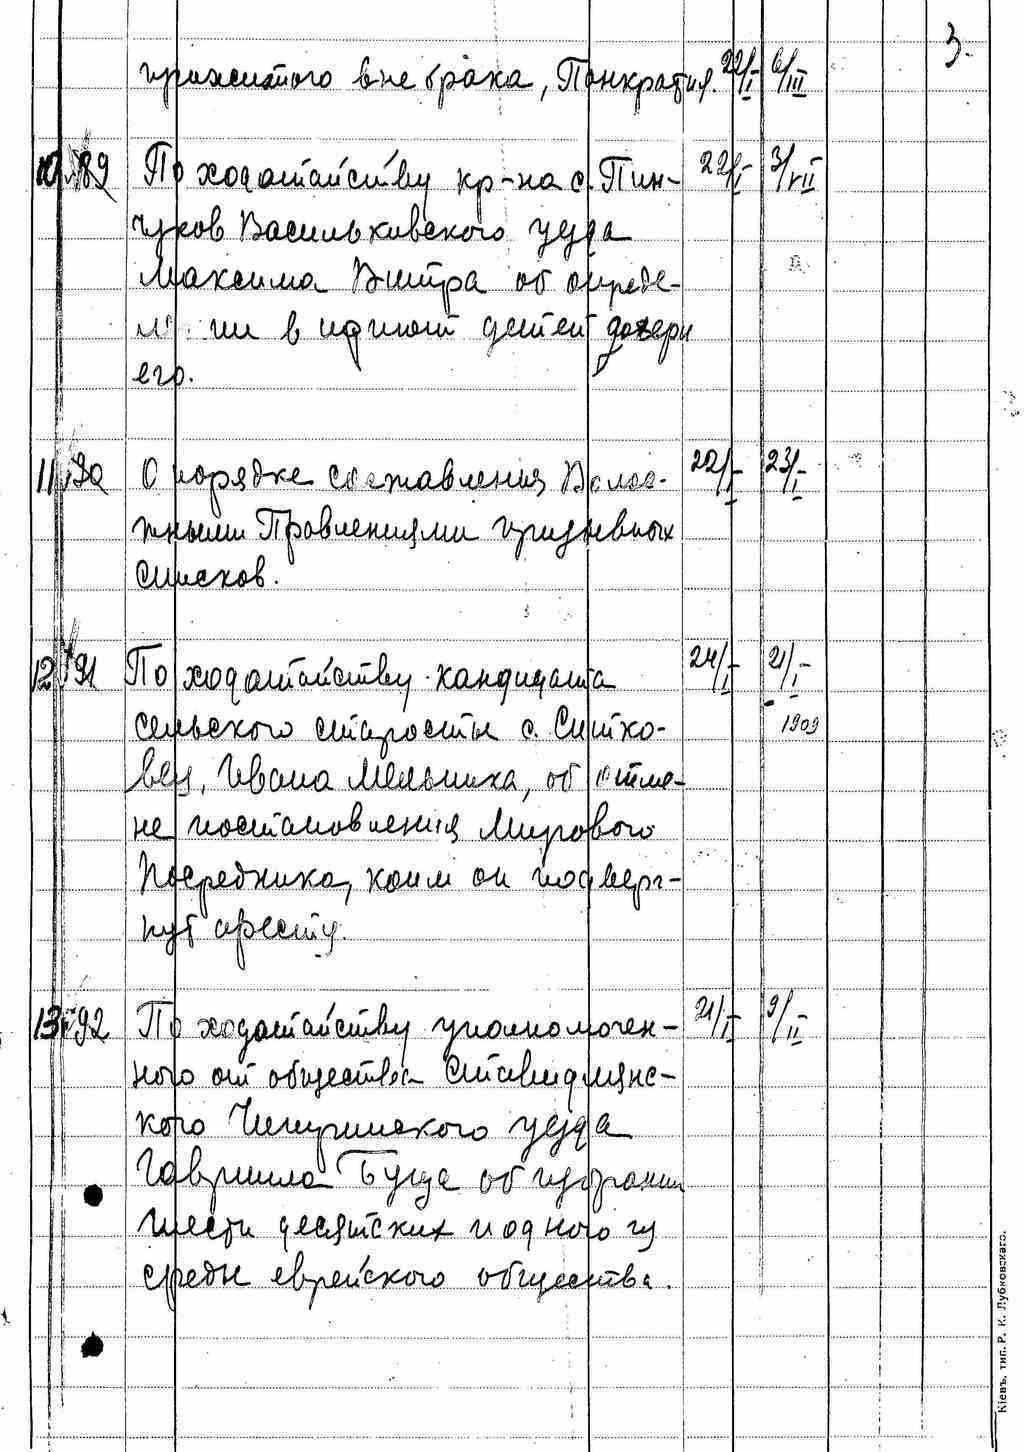 3.
прижитого вне брака, Панкратия. 22/I 6/III
10 189 По ходатайству кр-на с. Пин- 22/I 3/VII
чуков Васильковского уезда
Максима Витра об опреде-
ии в приют детей дочери
его.
11 190 О порядке составления Волос- 22/I 23/I
тными Правлениями призывных
списков.
12 191 По ходатайству кандидата 24/I 21/I
сельского старосты с. Ситко- 1909
вец, Ивана Мельника, об отме-
не постановления Мирового
Посредника, коим он подверг-
нут аресту.
13 192 По ходатайству уполномочен- 21/I 9/II
ного от общества Ставидлянс-
кого Чигиринского уезда
Гавриила об избрании
шести десятских и одного из
среды еврейского общества.
Кіевъ, тип. Р. К. Лубковскаго.